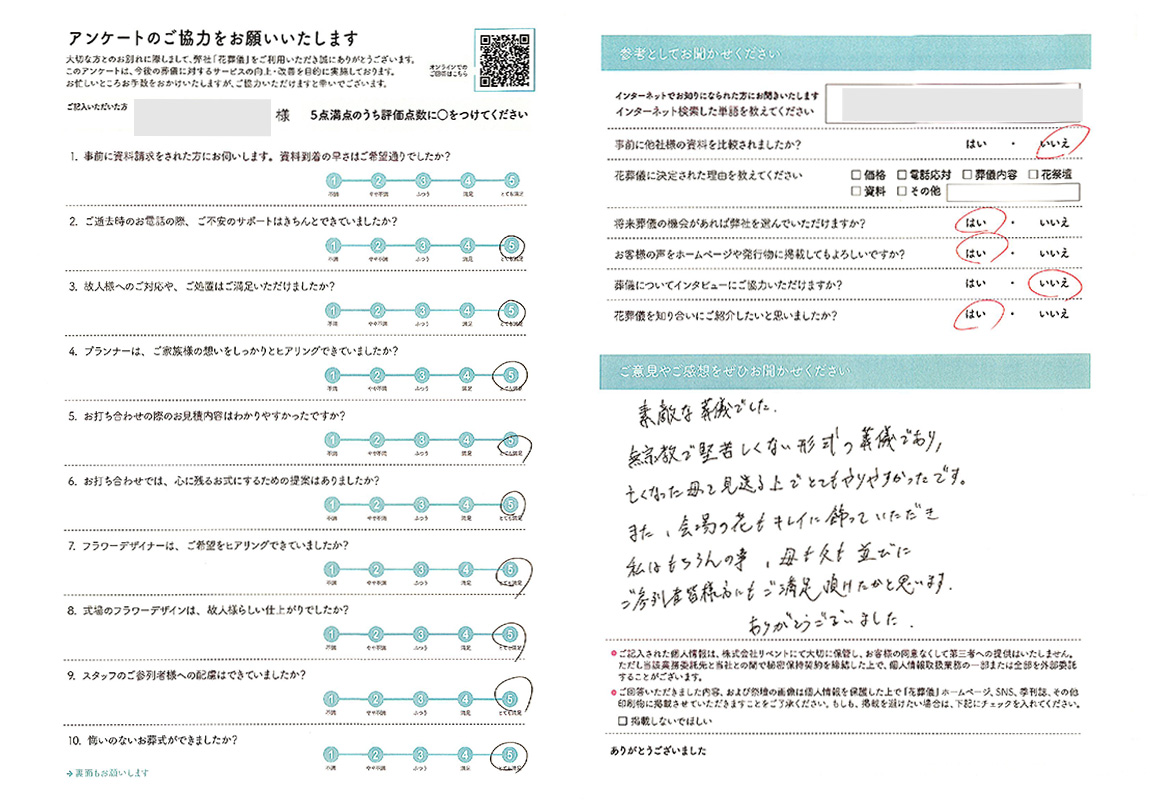 アンケートのご協力をお願いいたします
大切な方とのお別れに際しまして、弊社「花葬儀」をご利用いただき誠にありがとうございます。
このアンケートは、今後の葬儀に対するサービスの向上・改善を目的に実施しております。
お忙しいところお手数をおかけいたしますが、ご協力いただけますと幸いでございます。
オンラインでの
ご回答はこちら
ご記入いただいた方
様
5点満点のうち評価点数に○をつけてください
1. 事前に資料請求をされた方にお伺いします。資料到着の早さはご希望通りでしたか？
1 2 3 4 5
不満 やや不満 ふつう 満足 とても満足
2. ご逝去時のお電話の際、ご不安のサポートはきちんとできていましたか？
1 2 3 4 5
不満 やや不満 ふつう 満足 とても満足
3. 故人様へのご対応や、ご処置はご満足いただけましたか？
1 2 3 4 5
不満 やや不満 ふつう 満足 とても満足
4. プランナーは、ご家族様の想いをしっかりとヒアリングできていましたか？
1 2 3 4 5
不満 やや不満 ふつう 満足 とても満足
5. お打ち合わせの際のお見積内容はわかりやすかったですか？
1 2 3 4 5
不満 やや不満 ふつう 満足 とても満足
6. お打ち合わせでは、心に残るお式にするための提案はありましたか？
1 2 3 4 5
不満 やや不満 ふつう 満足 とても満足
7. フラワーデザイナーは、ご希望をヒアリングできていましたか？
1 2 3 4 5
不満 やや不満 ふつう 満足 とても満足
8. 式場のフラワーデザインは、故人様らしい仕上がりでしたか？
1 2 3 4 5
不満 やや不満 ふつう 満足 とても満足
9. スタッフのご参列者様への配慮はできていましたか？
1 2 3 4 5
不満 やや不満 ふつう 満足 とても満足
10. 悔いのないお葬式ができましたか？
1 2 3 4 5
不満 やや不満 ふつう 満足 とても満足
→裏面もお願いします
参考としてお聞かせください
インターネットでお知りになられた方にお聞きいたします
インターネット検索した単語を教えてください
事前に他社様の資料を比較されましたか？ はい ・ いいえ
花葬儀に決定された理由を教えてください □価格 □電話応対 □葬儀内容 □花祭壇
□資料 □その他
将来葬儀の機会があれば弊社を選んでいただけますか？ はい ・ いいえ
お客様の声をホームページや発行物に掲載してもよろしいですか？ はい ・ いいえ
葬儀についてインタビューにご協力いただけますか？ はい ・ いいえ
花葬儀を知り合いにご紹介したいと思いましたか？ はい ・ いいえ
ご意見やご感想をぜひお聞かせください
素敵な葬儀でした.
無宗教で堅苦しくない形式の葬儀であり,
亡くなった母を見送る上でとてもやりやすかったです。
また、会場の花もキレイに飾っていただき
私はもちろんの事、母も父も並びに
ご参列者皆様方にもご満足頂けたかと思います.
ありがとうございました.
ご記入された個人情報は、株式会社リベントにて大切に保管し、お客様の同意なくして第三者への提供はいたしません。
ただし当該業務委託先と当社との間で秘密保持契約を締結した上で、個人情報取扱業務の一部または全部を外部委託
することがございます。
ご回答いただきました内容、および祭壇の画像は個人情報を保護した上で『花葬儀』ホームページ、SNS、季刊誌、その他
印刷物に掲載させていただきますことをご了承ください。もしも、掲載を避けたい場合は、下記にチェックを入れてください。
□ 掲載しないでほしい
ありがとうございました